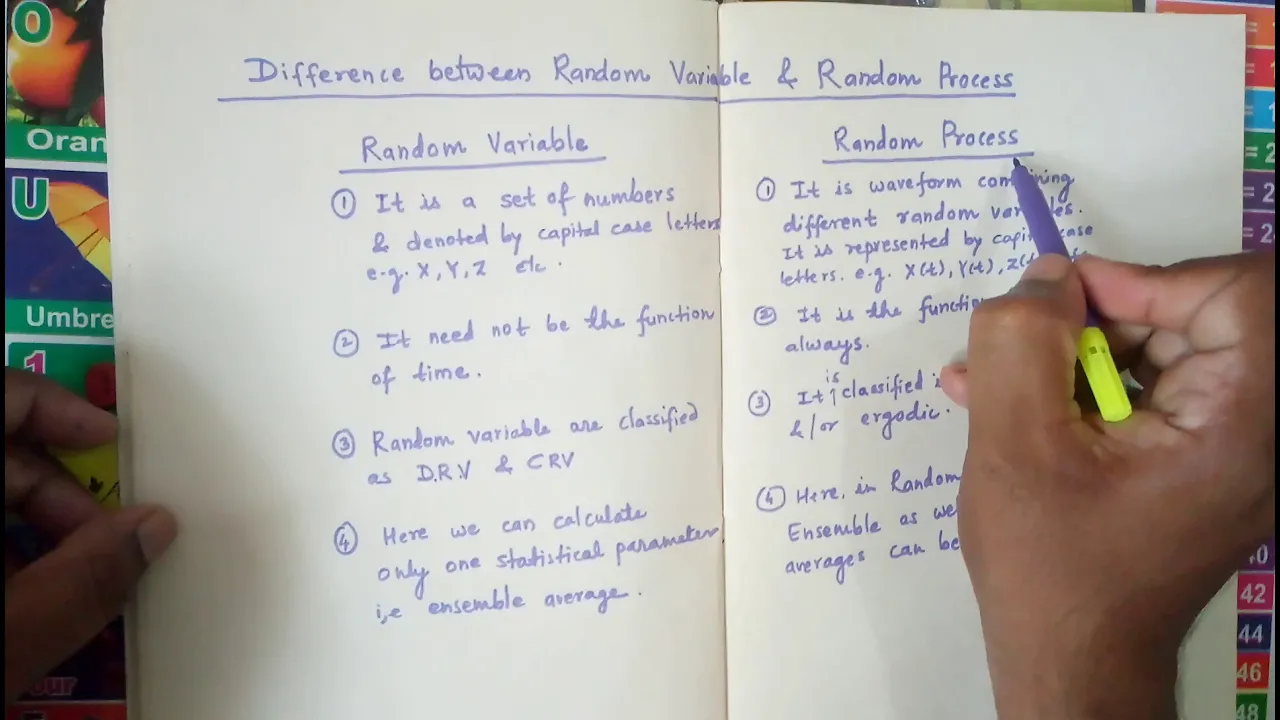 Difference between Random Variable & Random Process
Random Variable
① It is a set of numbers
& denoted by capital case letters
e.g. X, Y, Z etc.
② It need not be the function
of time.
③ Random variable are classified
as D.R.V & CRV
④ Here we can calculate
only one statistical parameter
i,e ensemble average.
Random Process
① It is waveform
different random
It is represented by case
letters. e.g. X(t), Y(t),
② It is the
always.
③ It is classified
&/or ergodic.
④ Here, in Random
Ensemble as
averages can
O
Oran
U
Umbre
1
our
= 2
= 2
= 2
40
42
44
46
48